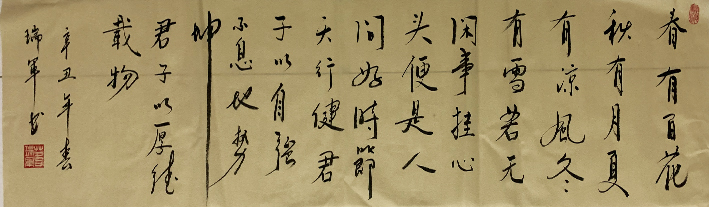 春有百花
秋有月夏
有凉风冬
有雪若无
闲事挂心
头便是人
间好时节
天行健君
子以自强
不息地势
坤
君子以厚德
载物
辛丑年春
瑞军书